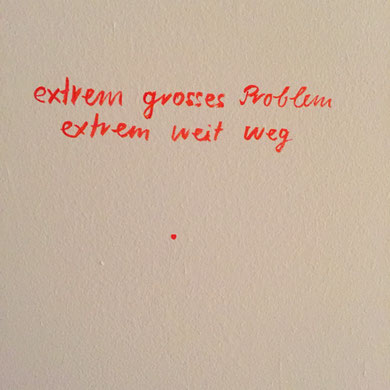 extrem grosses Problem
extrem weit weg